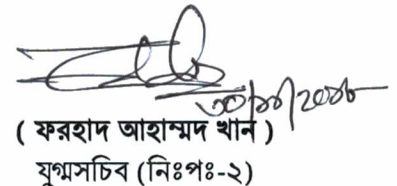 ৩০/১১/২০১৮
( ফরহাদ আহাম্মদ খান )
যুগ্মসচিব (নিঃপঃ-২)